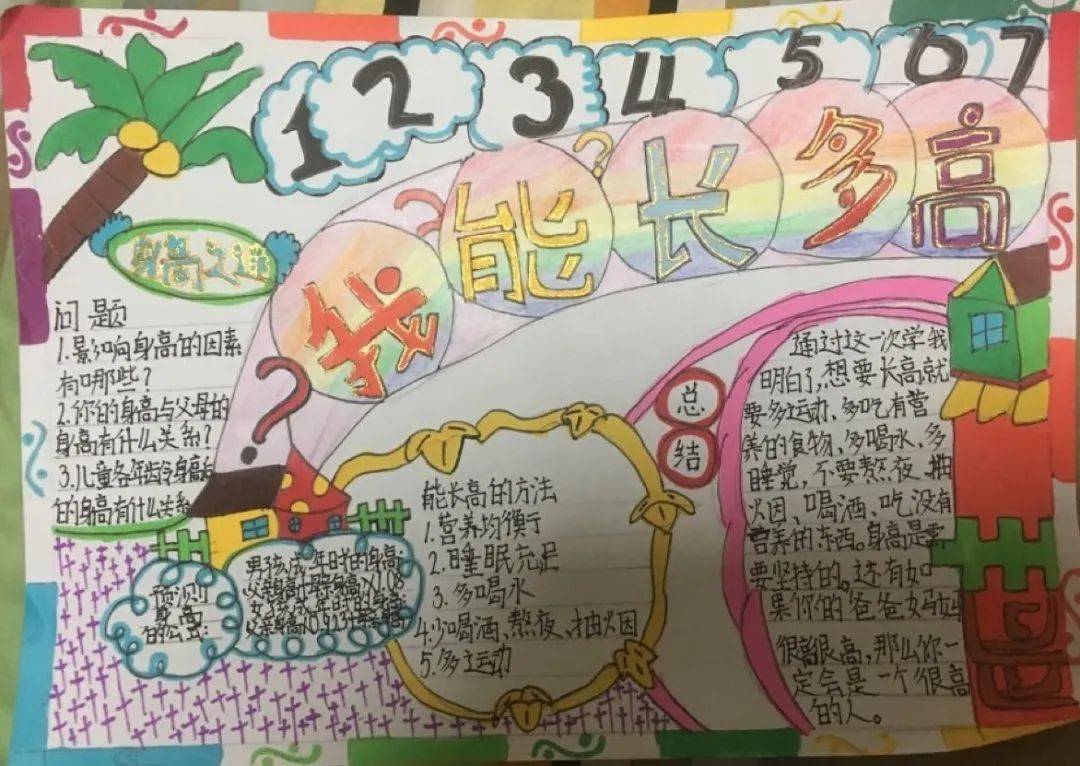 1 2 3 4 5 6 7
我能长多高
身高之谜
问题
1.影响身高的因素
有哪些？
2.你的身高与父母的
身高有什么关系？
3.儿童各年龄身高
的身高有什么关系
预测
身高
的公式:
男孩成年时的身高:
父亲身高+母亲身高×1.08
女孩成年时的身高:
父亲身高×0.913+母亲身高
能长高的方法
1.营养均衡
2.睡眠充足
3.多喝水
4.少喝酒、熬夜、抽烟
5.多运动
总
结
通过这一次学我
明白了,想要长高就
要多运动、多吃有营
养的食物,多喝水、多
睡觉,不要熬夜、抽
烟、喝酒、吃没有
营养的东西。身高是需
要坚持的。还有如
果你的爸爸妈妈
很高很高,那么你一
定会是一个很高
的人。